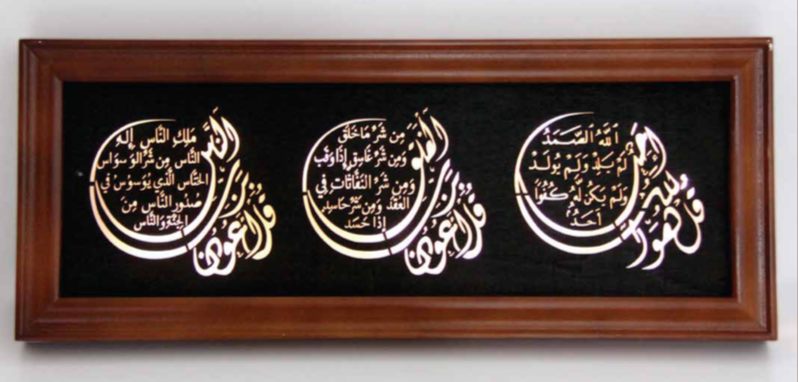 قل هو الله أحد
الله الصمد
لم يلد ولم يولد
ولم يكن له كفوا
أحد
قل أعوذ برب الفلق
من شر ما خلق
ومن شر غاسق إذا وقب
ومن شر النفاثات في
العقد ومن شر حاسد
إذا حسد
قل أعوذ برب الناس
ملك الناس إله
الناس من شر الوسواس
الخناس الذي يوسوس في
صدور الناس من
الجنة والناس